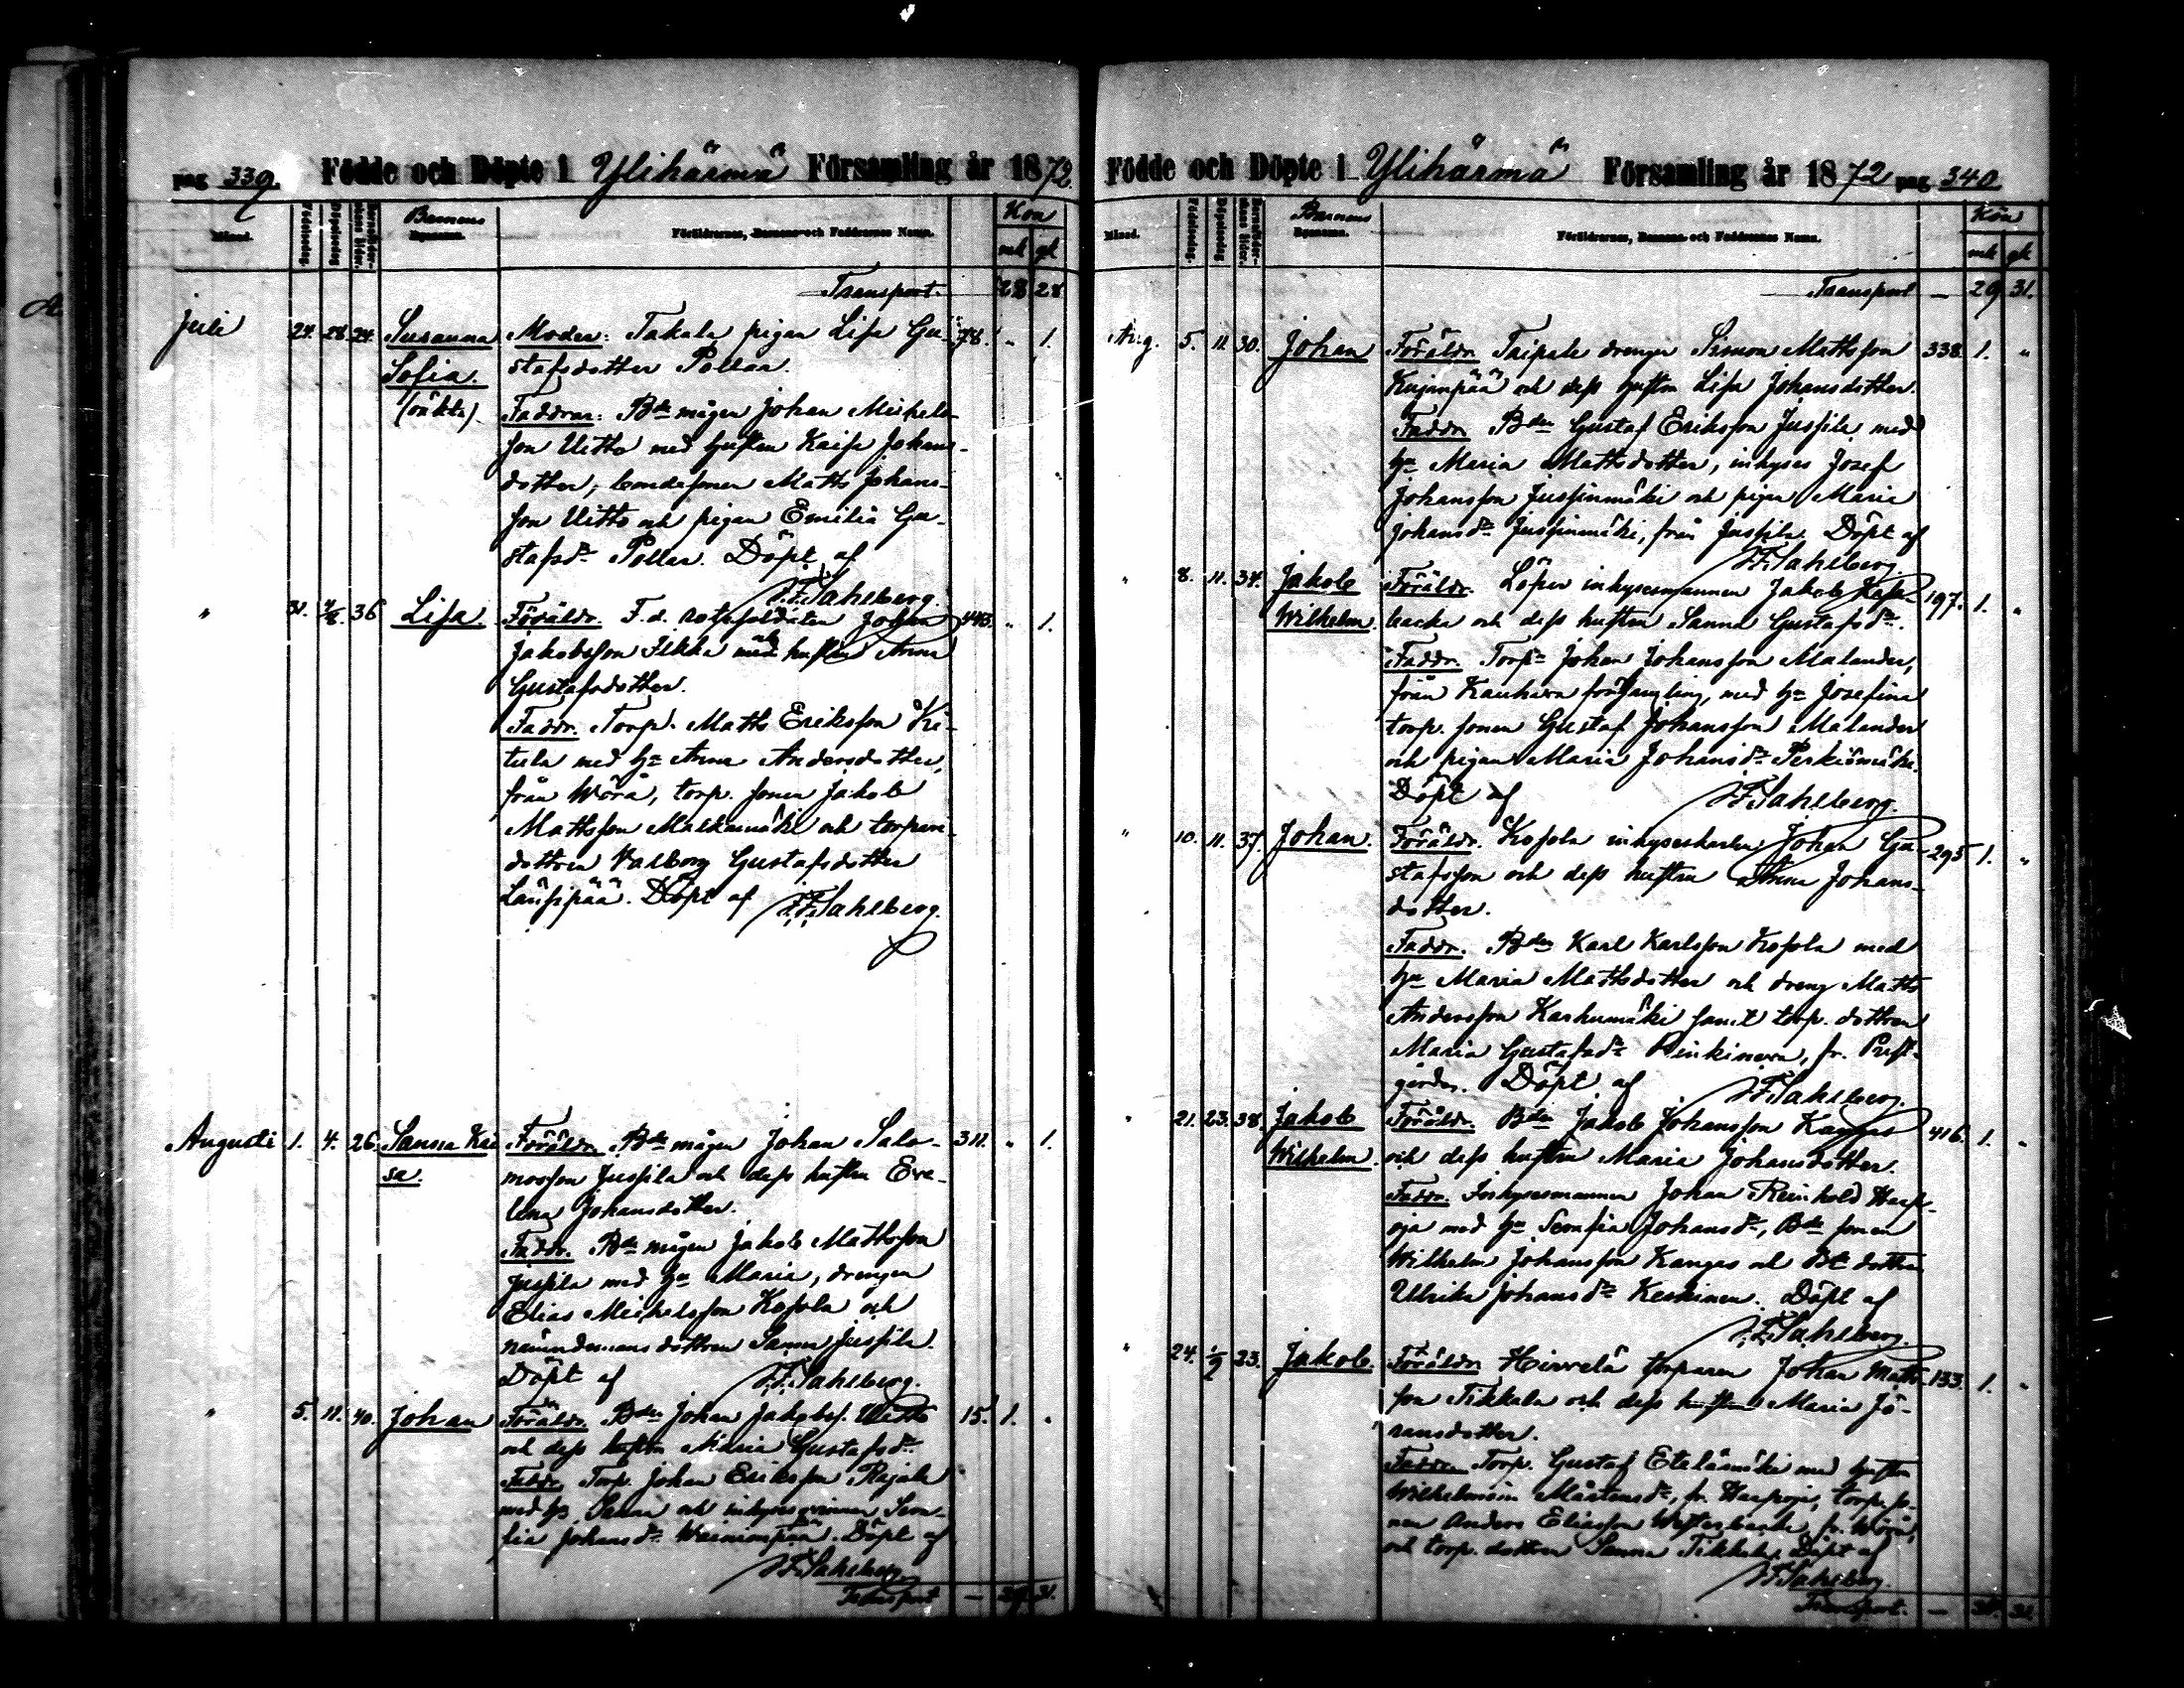 pag 339. Födde och Döpte i Ylihärmä Församling år 1872.
Månad. Födelsedag. Döpelsedag. Barnens Föräldrarnes, Barnens och Faddrarnes Namn. Kön
mk qk
Transport. 28 28
Juli 24. 28. 24. Susanna Moder: Takala pigan Lisa Gu- 78. " 1.
Sofia. stafsdotter Pollar.
(oäkta) Faddrar: Bde mågen Johan Michels-
son Uitto med hustru Kaisa Johans-
dotter, bondesonen Matts Johans-
son Uitto och pigan Emilia Gu-
stafsdr Pollar. Döpt af
J.F. Sahlberg.
" 31. 4/8. 36 Lisa. Föräldr. F.d. rotesoldaten Johan 443. " 1.
Jakobsson Ilkka och hustrun Anna
Gustafsdotter.
Faddr. Torp. Matts Eriksson Ki-
tula med hu Anna Andersdotter,
från Wörå, torp. sonen Jakob
Mattsson Markusmäki och torpare
dottren Valborg Gustafsdotter
Länsipää. Döpt af J.F. Sahlberg.
Augusti 1. 4. 26. Sanna Kai Föräldr. Bde mågen Johan Salo- 311. " 1.
sa. monson Jussila och dess hustru Eve-
lina Johansdotter.
Faddr. Bde mågen Jakob Mattsson
Jussila med hu Maria, drengen
Elias Michelsson Kosola och
nämndemansdottren Sanna Jussila.
Döpt af J.F. Sahlberg.
" 5. 11. 40. Johan Föräldr. Bden Johan Jakobss. Uitto 15. 1. "
och dess hustru Maria Gustafsdr
Faddr. Torp. Johan Eriksson Rajala
med hu Sanna och inhyses qvinnan Sera-
fia Johansdr Wainionpää. Döpt af
J.F. Sahlberg.
Transport — 29. 31.
Födde och Döpte i Ylihärmä Församling år 1872 pag 340.
Månad. Födelsedag. Döpelsedag. Barnens Föräldrarnes, Barnens och Faddrarnes Namn. Kön
mk qk
Transport — 29 31.
Aug. 5. 11. 30. Johan Föräldr. Taipale drengen Simon Mattsson 338. 1. "
Kujanpää och dess hustru Lisa Johansdotter.
Faddr. Bden Gustaf Eriksson Jussila med
hu Maria Mattsdotter, inhyses Josef
Johansson Jussinmäki och pigan Maria
Johansdr Jussinmäki, från Jussila. Döpt af
J.F. Sahlberg.
" 8. 11. 34. Jakob Föräldr. Löper inhysesmannen Jakob 197. 1. "
Wilhelm. backa och dess hustru Sanna Gustafsdr.
Faddr. Torpn Johan Johansson Malander,
från Kauhava församling, med hu Josefina
torp. sonen Gustaf Johansson Malander
och pigan Maria Johansdr Perkiömäki.
Döpt af J.F. Sahlberg.
" 10. 11. 37. Johan. Föräldr. Kosola inhyseskarlen Johan Gu- 295 1. "
stafsson och dess hustru Anna Johans-
dotter.
Faddr. Bden Karl Karlsson Kosola med
hu Maria Mattsdotter och dreng Matts
Andersson Karhumäki samt torp. dottren
Maria Gustafsdr, fr. Prest-
gården. Döpt af J.F. Sahlberg.
" 21. 23. 38. Jakob Föräldr. Bden Jakob Johansson Kangas 416. 1. "
Wilhelm. och dess hustru Maria Johansdotter.
Faddr. Inhysesmannen Johan Reinhold Haap-
oja med hu Serafia Johansdr, Bde sonen
Wilhelm Johansson Kangas och Bde dottren
Ulrika Johansdr Keskinen. Döpt af
J.F. Sahlberg.
" 24. 1/9 23. Jakob. Föräldr. Hirvelä torparen Johan Matts- 133. 1. "
son Tikkala och dess hustru Maria Jö-
ransdotter.
Faddr. Torp. Gustaf Etelämäki med hustru
Wilhelmina Mårtensdr, fr. Haapoja, torp. so-
nen Anders Eliasson Westerbacka, fr. Wörå,
och torp. dottren Sanna Tikkala. Döpt af
J.F. Sahlberg.
Transport. — 34. 31.